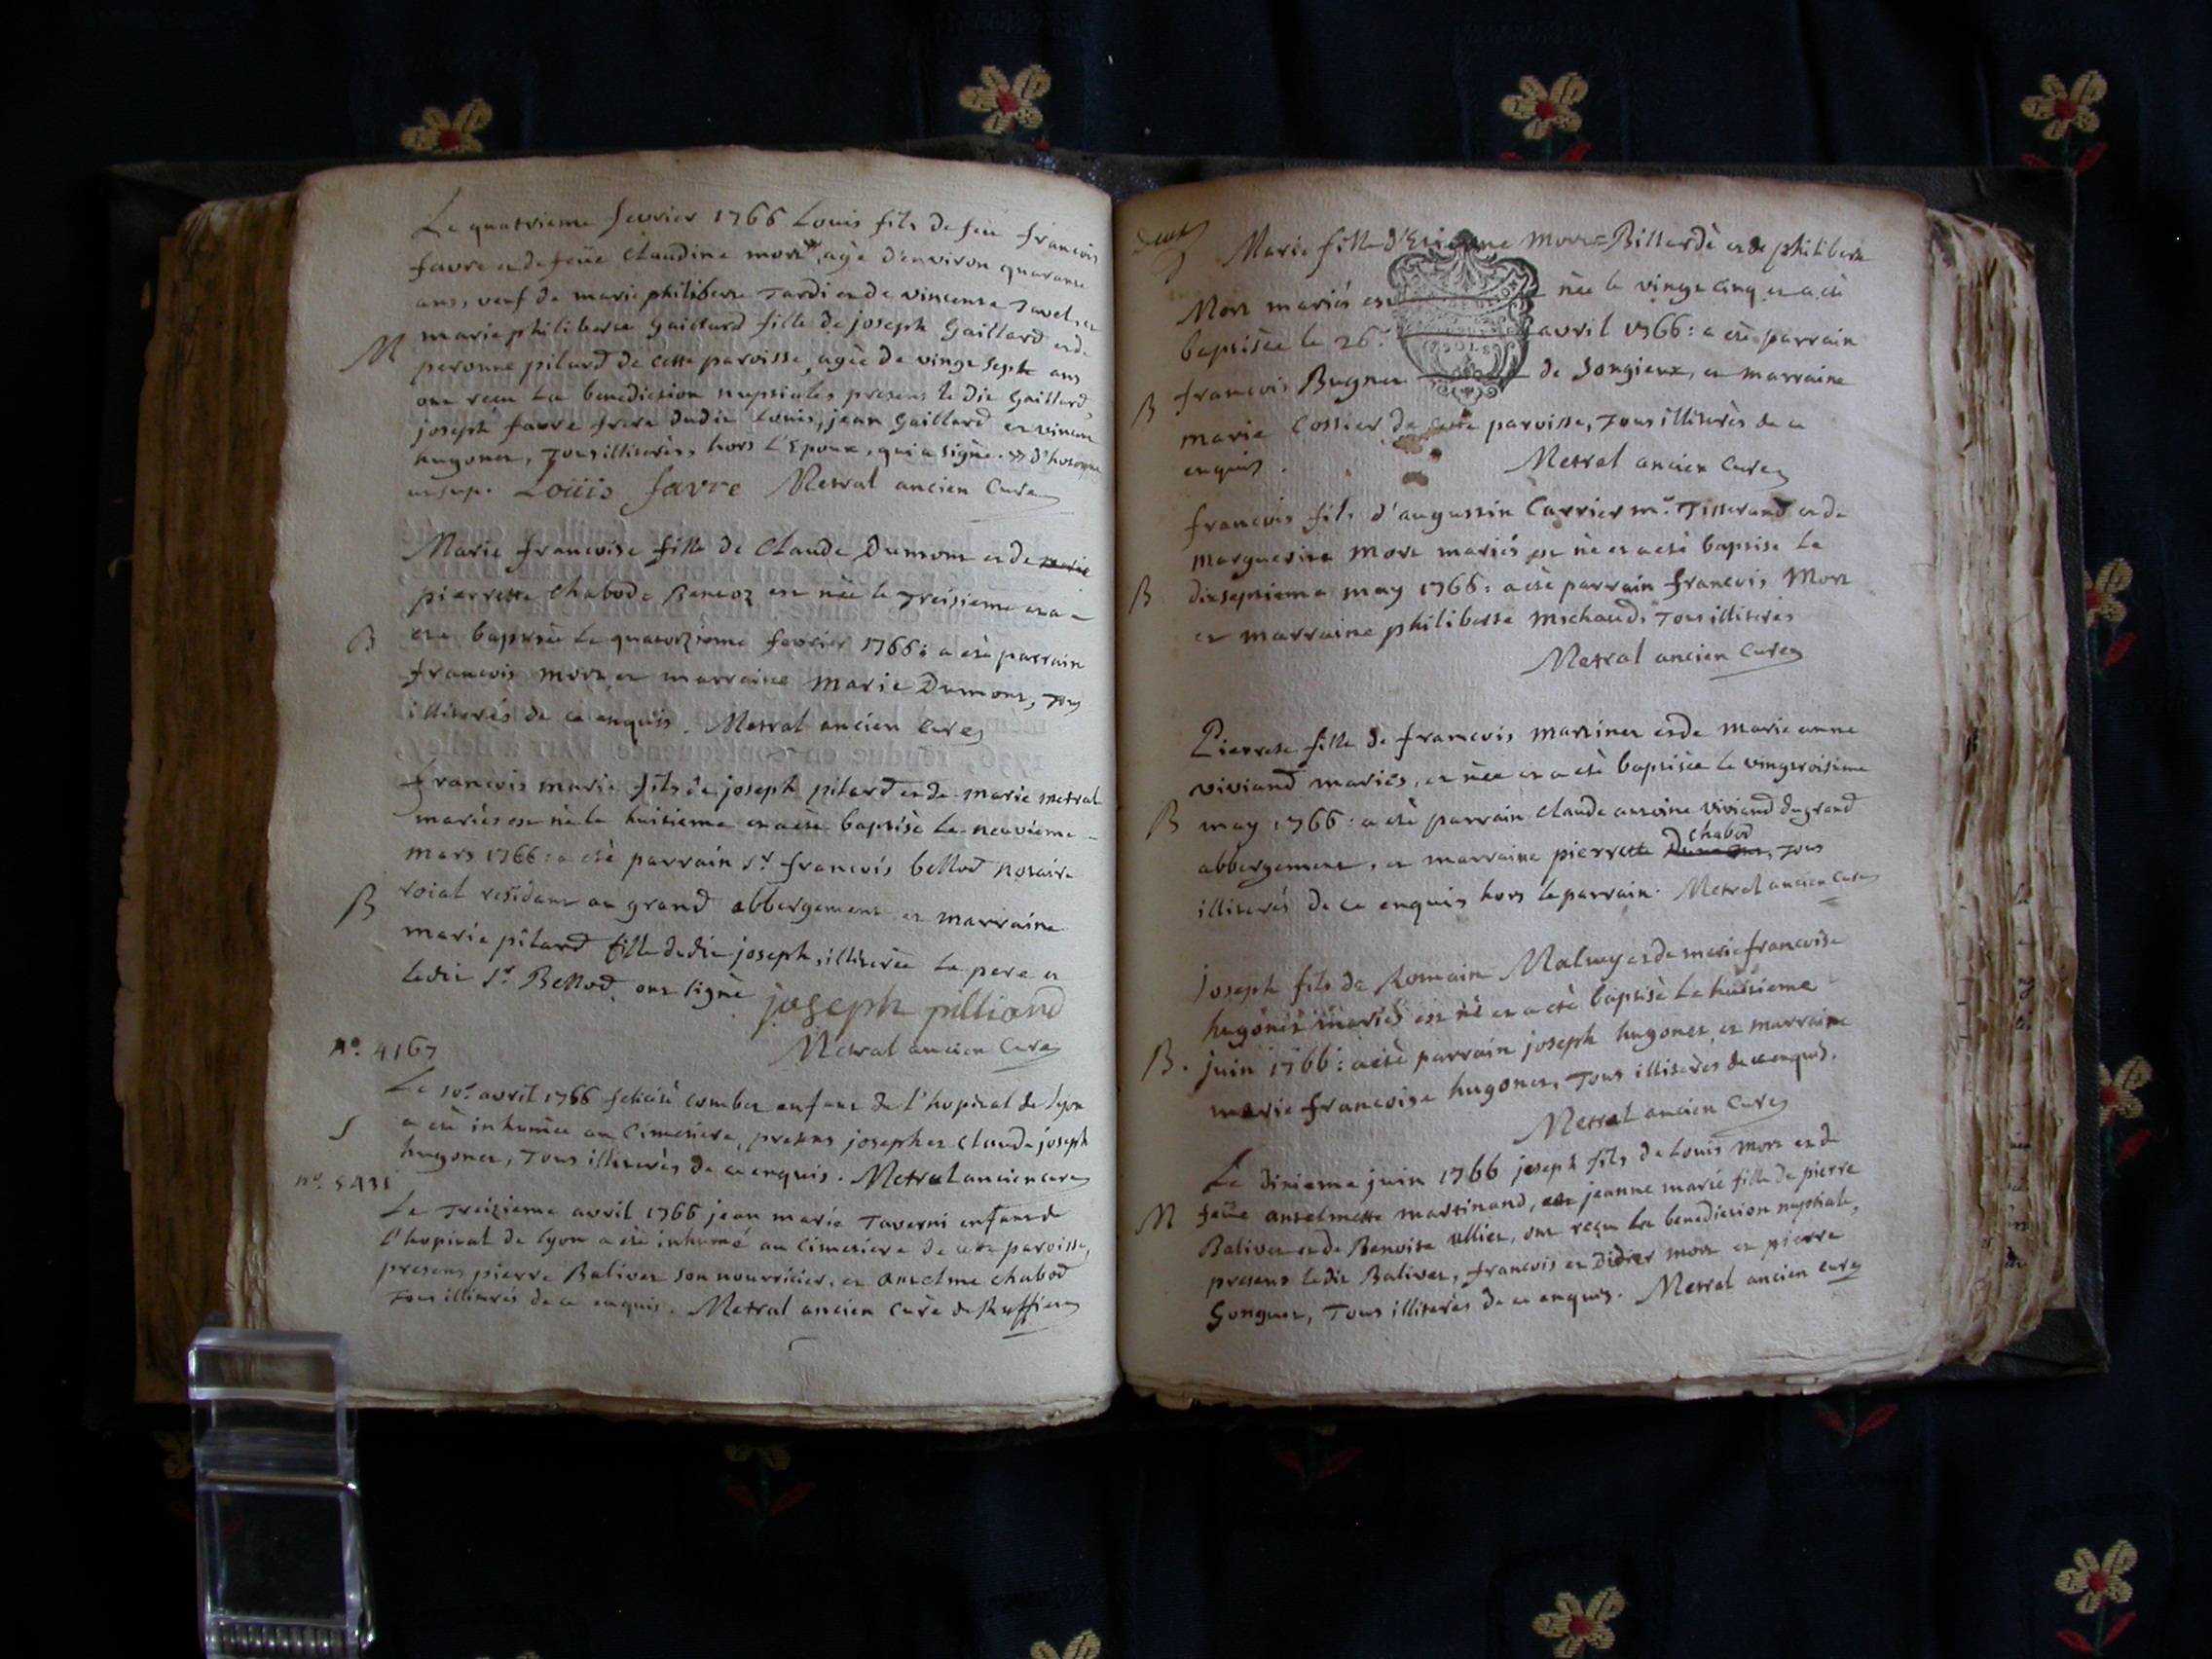 Le quatrieme fevrier 1766 Louis fils de feu francois
favre et de feüe Claudine mort, agé d'environ quarante
ans, veuf de marie philiberte Tardi et de vincente Javel, et
marie philiberte Gaillard fille de joseph Gaillard et de
M
peronne pilard de cette paroisse, agée de vingt sept ans
ont reçu la benediction nuptiales presens le dit Gaillard,
joseph favre frere dudit Louis, jean Gaillard et vincent
hugonet, Tous illiterés, hors L'Epoux, qui a signé.
ut sup. Loüis favre Metral ancien Curé
Marie francoise fille de Claude Dumont et de marie
pierrette Chabod est née le Treisieme et a
B
eté baptisée le quatorzieme fevrier 1766: a eté parrain
francois mort et marraine Marie Dumont, Tous
illiterés de ce enquis. Metral ancien curé
francois marie fils de joseph pilard et de marie metral
mariés est né le huitieme et a eté baptisé le neuvieme
mars 1766: a eté parrain Sr francois bellod notaire
B
roial residant au grand abbergement et marraine
marie pilard fille dudit joseph, illiterée le pere et
ledit Sr Bellod, ont signé joseph pilliand
Metral ancien Curé
no. 4167
Le 10e avril 1766 felicité combet enfant de l'hopital de lyon
S
a eté inhumée au Cimetiere, presens joseph et Claude joseph
hugonet, Tous illiterés de ce enquis. Metral ancien curé
no. 5431
Le Treizieme avril 1766 jean marie Taverni enfant de
l'hopital de lyon a eté inhumé au Cimetiere de cette paroisse,
presens pierre Balivet son nourricier, et anselme chabod
Tous illiterés de ce enquis. Metral ancien Curé de Ruffieu
Marie fille d'Etienne Mort=Billardé et de philiberte
Mort mariés est née le vingt cinq et a eté
baptisée le 26e avril 1766: a eté parrain
B
francois Bugnet de Songieux, et marraine
marie Cossier de cette paroisse, Tous illiterés de ce
enquis. Metral ancien Curé
francois fils d'augustin Carrier me. Tisserand et de
marguerite Mort mariés est né et a eté baptisé le
B
dixseptieme may 1766: a eté parrain francois Mort
et marraine philiberte michaud, Tous illiterés
Metral ancien Curé
Pierrete fille de francois martinet et de marie anne
viviand mariés, et née et a eté baptisée le vingtroisieme
B
may 1766: a eté parrain claude antoine viviand du grand
chabod
abbergement, et marraine pierrette Dumont, Tous
illiterés de ce enquis hors le parrain. Metral ancien Curé
Joseph fils de Romain Maluuy et de marie francoise
hugonet mariés est né et a eté baptisé le huitieme
B.
juin 1766: a eté parrain joseph hugonet et marraine
marie francoise hugonet, Tous illiterés de ce enquis.
Metral ancien Curé
Le dixieme juin 1766 joseph fils de Louis mort et de
M
feüe anselmette martinand, et jeanne marie fille de pierre
Balivet et de Benoite ullier, ont reçu la benediction nuptiale,
presens ledit Balivet, francois et Didier mort et pierre
Gonguet, Tous illiterés de ce enquis. Metral ancien curé